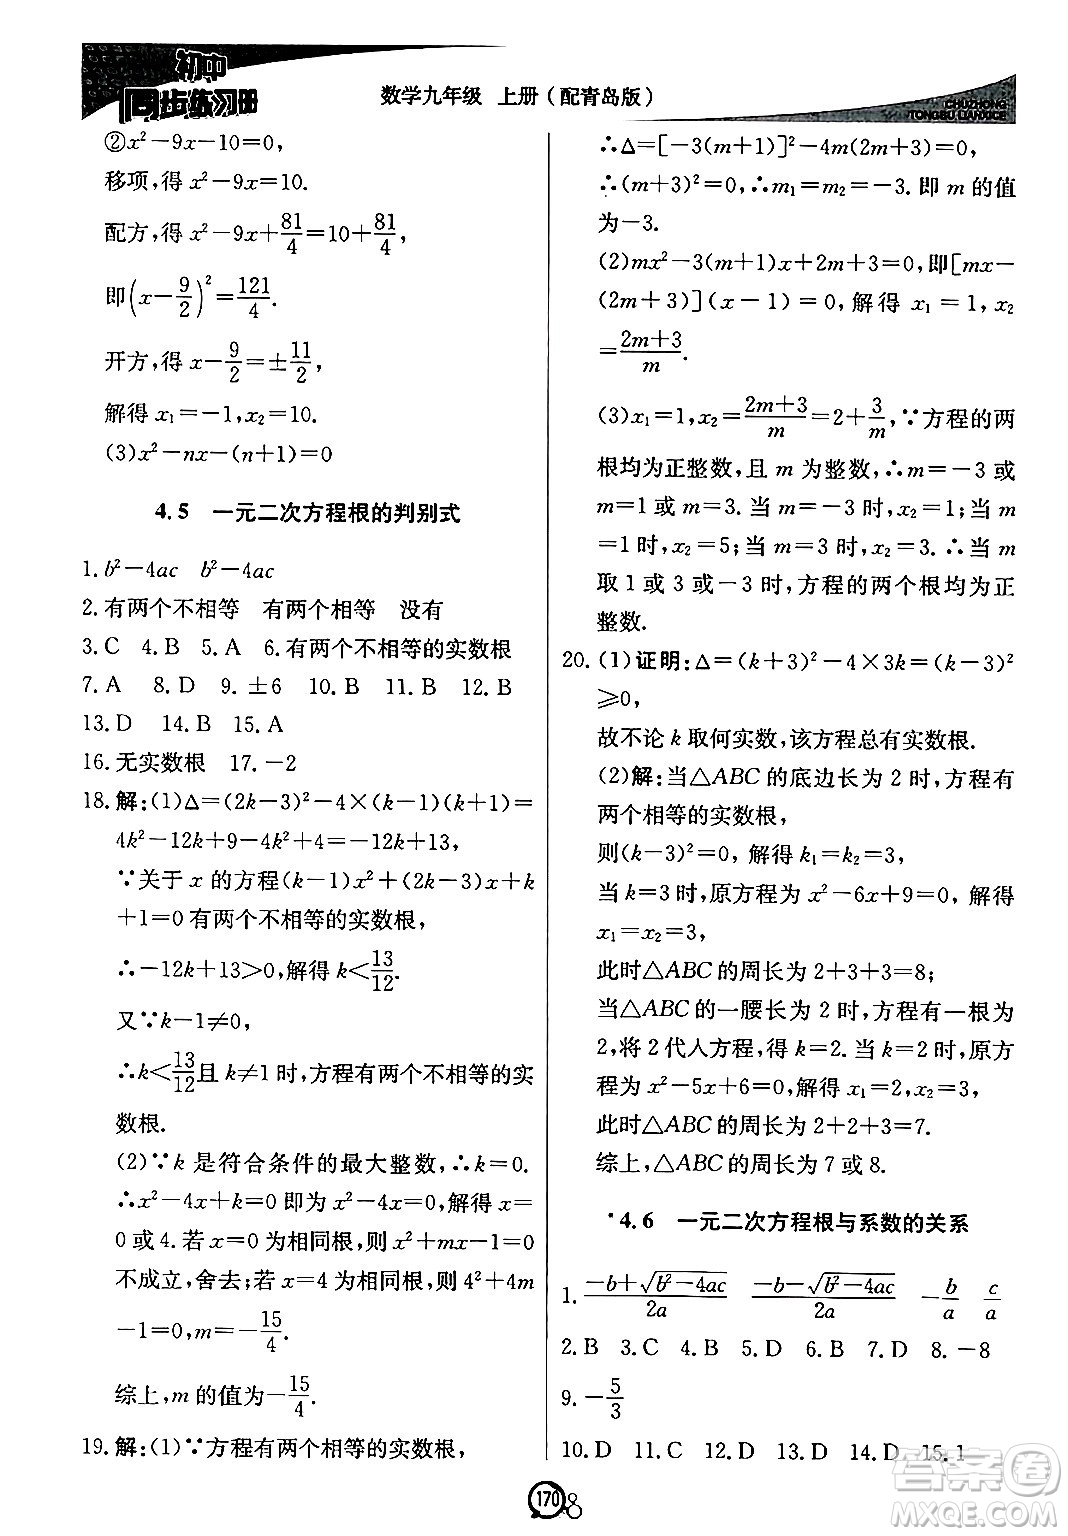 初中
同步练习册
数学九年级 上册(配青岛版)
CHUZHONG
TONGBU LIANXICE
②x²-9x-10=0,
移项,得 x²-9x=10.
配方,得 x²-9x+81/4=10+81/4,
即(x-9/2)²=121/4.
开方,得 x-9/2=±11/2,
解得 x₁=-1,x₂=10.
(3)x²-nx-(n+1)=0
4.5 一元二次方程根的判别式
1. b²-4ac b²-4ac
2. 有两个不相等 有两个相等 没有
3. C 4. B 5. A 6. 有两个不相等的实数根
7. A 8. D 9. ±6 10. B 11. B 12. B
13. D 14. B 15. A
16. 无实数根 17. -2
18. 解:(1)Δ=(2k-3)²-4×(k-1)(k+1)=
4k²-12k+9-4k²+4=-12k+13,
∵关于 x 的方程(k-1)x²+(2k-3)x+k
+1=0 有两个不相等的实数根,
∴-12k+13>0,解得 k<13/12.
又∵k-1≠0,
∴k<13/12且 k≠1 时,方程有两个不相等的实
数根.
(2)∵k 是符合条件的最大整数,∴k=0.
∴x²-4x+k=0 即为 x²-4x=0,解得 x=
0 或 4. 若 x=0 为相同根,则 x²+mx-1=0
不成立,舍去;若 x=4 为相同根,则 4²+4m
-1=0,m=-15/4.
综上,m 的值为-15/4.
19. 解:(1)∵方程有两个相等的实数根,
∴Δ=[-3(m+1)]²-4m(2m+3)=0,
∴(m+3)²=0,∴m₁=m₂=-3. 即 m 的值
为-3.
(2)mx²-3(m+1)x+2m+3=0,即[mx-
(2m+3)](x-1)=0,解得 x₁=1,x₂
=(2m+3)/m.
(3)x₁=1,x₂=(2m+3)/m=2+3/m,∵方程的两
根均为正整数,且 m 为整数,∴m=-3 或
m=1 或 m=3. 当 m=-3 时,x₂=1;当 m
=1 时,x₂=5;当 m=3 时,x₂=3. ∴当 m
取 1 或 3 或-3 时,方程的两个根均为正
整数.
20. (1)证明:Δ=(k+3)²-4×3k=(k-3)²
≥0,
故不论 k 取何实数,该方程总有实数根.
(2)解:当△ABC 的底边长为 2 时,方程有
两个相等的实数根,
则(k-3)²=0,解得 k₁=k₂=3,
当 k=3 时,原方程为 x²-6x+9=0,解得
x₁=x₂=3,
此时△ABC 的周长为 2+3+3=8;
当△ABC 的一腰长为 2 时,方程有一根为
2,将 2 代人方程,得 k=2. 当 k=2 时,原方
程为 x²-5x+6=0,解得 x₁=2,x₂=3,
此时△ABC 的周长为 2+2+3=7.
综上,△ABC 的周长为 7 或 8.
4.6 一元二次方程根与系数的关系
1. (-b+√(b²-4ac))/2a (-b-√(b²-4ac))/2a -b/a c/a
2. B 3. C 4. A 5. D 6. A 7. D 8. -8
9. -5/3
10. D 11. C 12. D 13. D 14. D 15. 1
170
答案圈
MXQE.COM